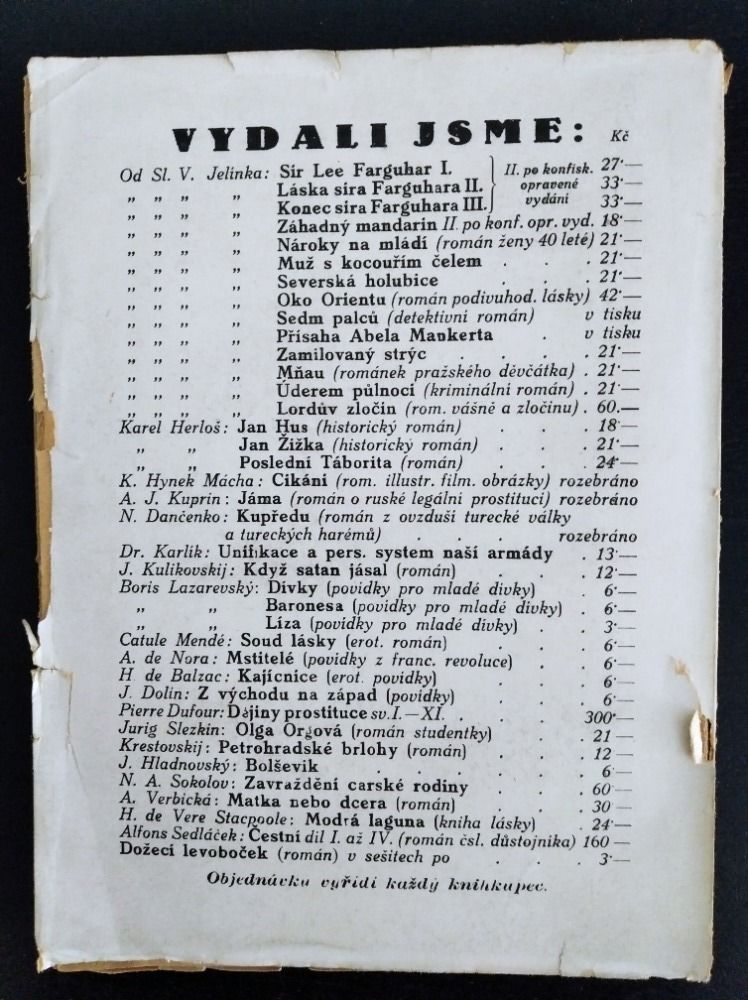 VYDALI JSME: Kč
Od Sl. V. Jelínka: Sir Lee Farguhar I. } II. po konfisk. 27·—
„ „ „ „ Láska sira Farguhara II. } opravené 33·—
„ „ „ „ Konec sira Farguhara III. } vydání 33·—
„ „ „ „ Záhadný mandarin II. po konf. opr. vyd. 18·—
„ „ „ „ Nároky na mládí (román ženy 40 leté) 21·—
„ „ „ „ Muž s kocouřím čelem . . . 21·—
„ „ „ „ Severská holubice . . . 21·—
„ „ „ „ Oko Orientu (román podivuhod. lásky) 42·—
„ „ „ „ Sedm palců (detektivní román) v tisku
„ „ „ „ Přísaha Abela Mankerta . v tisku
„ „ „ „ Zamilovaný strýc . . . . 21·—
„ „ „ „ Mňau (románek pražského děvčátka) . 21·—
„ „ „ „ Úderem půlnoci (kriminální román) . 21·—
„ „ „ „ Lordův zločin (rom. vášně a zločinu) . 60.—
Karel Herloš: Jan Hus (historický román) . . . 18·—
„ „ Jan Žižka (historický román) . . . 21·—
„ „ Poslední Táborita (román) . . . 24·—
K. Hynek Mácha: Cikáni (rom. illustr. film. obrázky) rozebráno
A. J. Kuprin: Jáma (román o ruské legální prostituci) rozebráno
N. Dančenko: Kupředu (román z ovzduší turecké války
a tureckých harémů) . . . rozebráno
Dr. Karlík: Unifikace a pers. system naší armády . 13·—
J. Kulikovskij: Když satan jásal (román) . . . 12·—
Boris Lazarevský: Dívky (povídky pro mladé dívky) . 6·—
„ „ Baronesa (povídky pro mladé dívky) . 6·—
„ „ Líza (povídky pro mladé dívky) . . 3·—
Catule Mendé: Soud lásky (erot. román) . . . 6·—
A. de Nora: Mstitelé (povídky z franc. revoluce) . . 6·—
H. de Balzac: Kajícnice (erot. povídky) . . . 6·—
J. Dolin: Z východu na západ (povídky) . . . 6·—
Pierre Dufour: Dějiny prostituce sv. I.—XI. . . . 300·—
Jurig Slezkin: Olga Orgová (román studentky) . . 21 —
Krestovskij: Petrohradské brlohy (román) . . . 12 —
J. Hladnovský: Bolševik . . . . . . 6·—
N. A. Sokolov: Zavraždění carské rodiny . . . 60·—
A. Verbická: Matka nebo dcera (román) . . . 30 —
H. de Vere Stacpoole: Modrá laguna (kniha lásky) . 24·—
Alfons Sedláček: Čestní díl I. až IV. (román čsl. důstojníka) 160 —
Dožecí levoboček (román) v sešitech po . . . 3·—
Objednávku vyřídí každý knihkupec.